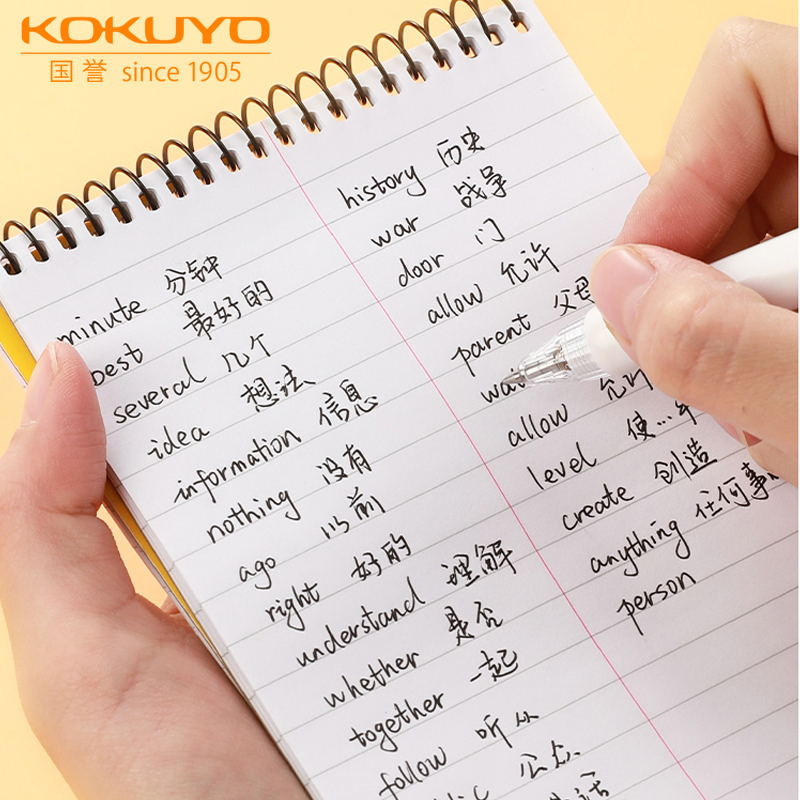 KOKUYO
国誉 since 1905
minute 分钟
best 最好的
several 几个
idea 想法
information 信息
nothing 没有
ago 以前
right 好的
understand 理解
whether 是否
together 一起
follow 听从
公众
history 历史
war 战争
door 门
allow 允许
parent 父母
wai
allow 允许
level 使…平
create 创造
anything 任何事
person